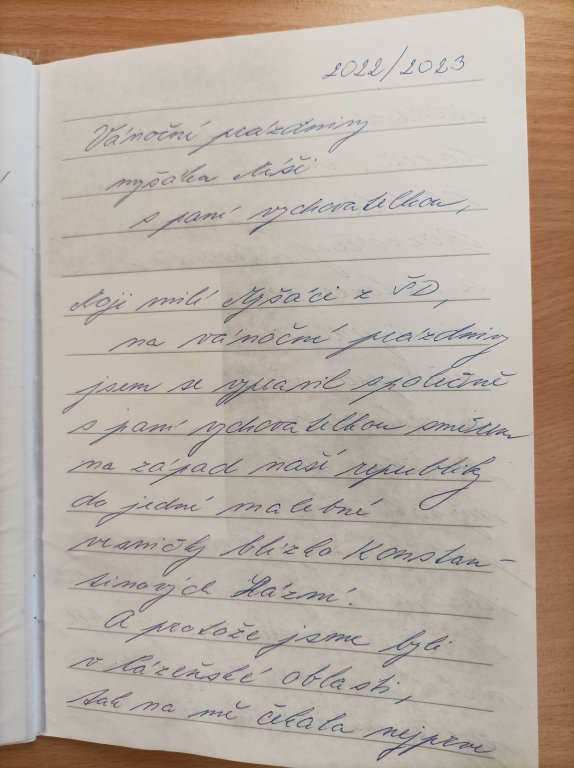 2022/2023
Vánoční prázdniny
myšáka Míši
s paní vychovatelkou,
Moji milí Myšáci z ŠD,
na vánoční prázdniny
jsem se vypravil společně
s paní vychovatelkou směrem
na západ naší republiky
do jedné malebné
vesničky blízko Konstan-
tinových Lázní.
A protože jsme byli
v lázeňské oblasti,
tak na mě čekala nejprve